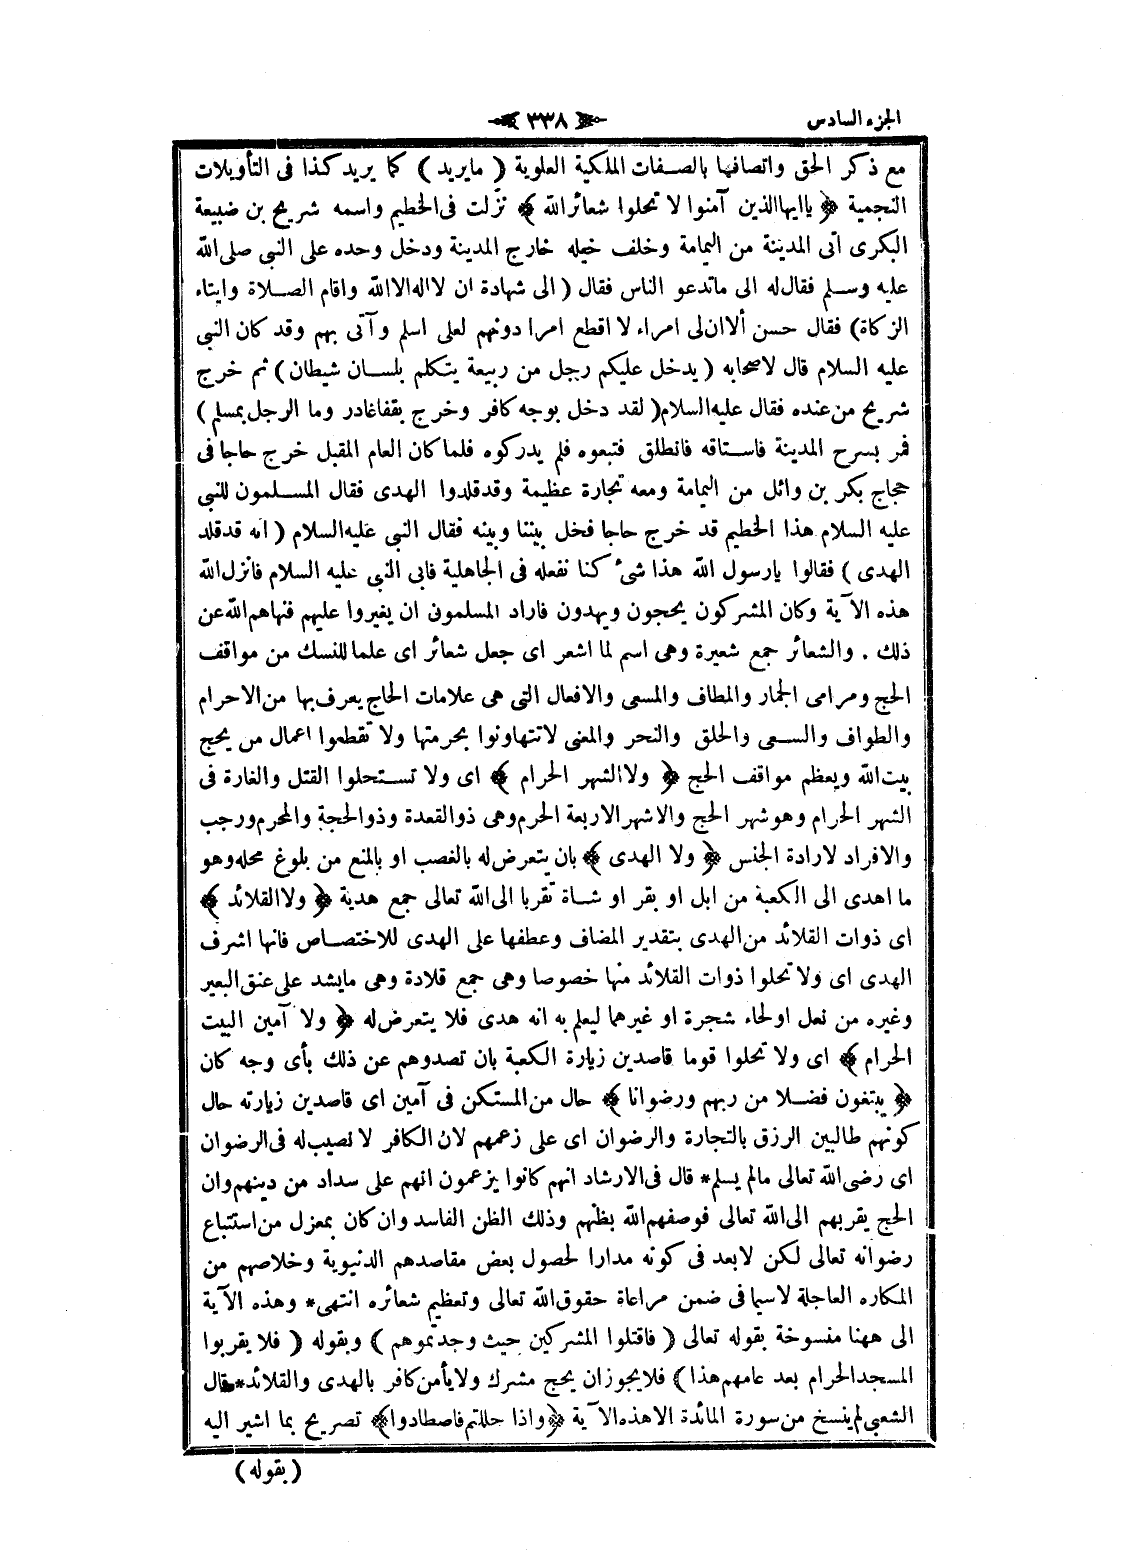 الجزء السادس
﴿ ٣٣٨ ﴾
مع ذكر الحق واتصافها بالصفات الملكية العلوية ( مايريد ) كما يريد كذا فى التأويلات
النجمية ﴿ ياايهاالذين آمنوا لا تحلوا شعائرالله ﴾ نزلت فى الحطيم واسمه شريح بن ضبيعة
البكرى اتى المدينة من اليمامة وخلف خيله خارج المدينة ودخل وحده على النبى صلى الله
عليه وسلم فقال له الى ماتدعو الناس فقال ( الى شهادة ان لااله الاالله واقام الصلاة وايتاء
الزكاة) فقال حسن ألاان لى امراء لا اقطع امرا دونهم لعلى اسلم وآتى بهم وقد كان النبى
عليه السلام قال لاصحابه ( يدخل عليكم رجل من ربيعة يتكلم بلسان شيطان ) ثم خرج
شريح من عنده فقال عليه السلام( لقد دخل بوجه كافر وخرج بقفاغادر وما الرجل بمسلم )
فمر بسرح المدينة فاستاقه فانطلق فتبعوه فلم يدركوه فلما كان العام المقبل خرج حاجا فى
حجاج بكر بن وائل من اليمامة ومعه تجارة عظيمة وقدقلدوا الهدى فقال المسلمون للنبى
عليه السلام هذا الحطيم قد خرج حاجا فخل بيننا وبينه فقال النبى عليه السلام ( انه قدقلد
الهدى ) فقالوا يارسول الله هذا شئ كنا نفعله فى الجاهلية فابى النبى عليه السلام فانزل الله
هذه الآية وكان المشركون يحجون ويهدون فاراد المسلمون ان يغيروا عليهم فنهاهم الله عن
ذلك . والشعائر جمع شعيرة وهى اسم لما اشعر اى جعل شعائر اى علما للنسك من مواقف
الحج ومرامى الجمار والمطاف والمسعى والافعال التى هى علامات الحاج يعرف بها من الاحرام
والطواف والسعى والحلق والنحر والمعنى لاتتهاونوا بحرمتها ولا تقطعوا اعمال من يحج
بيت الله ويعظم مواقف الحج ﴿ ولاالشهر الحرام ﴾ اى ولا تستحلوا القتل والغارة فى
الشهر الحرام وهو شهر الحج والاشهر الاربعة الحرم وهى ذوالقعدة وذوالحجة والمحرم ورجب
والافراد لارادة الجنس ﴿ ولا الهدى ﴾ بان يتعرض له بالغصب او بالمنع من بلوغ محله وهو
ما اهدى الى الكعبة من ابل او بقر او شاة تقربا الى الله تعالى جمع هدية ﴿ ولاالقلائد ﴾
اى ذوات القلائد من الهدى بتقدير المضاف وعطفها على الهدى للاختصاص فانها اشرف
الهدى اى ولا تحلوا ذوات القلائد منها خصوصا وهى جمع قلادة وهى مايشد على عنق البعير
وغيره من نعل اولحاء شجرة او غيرهما ليعلم به انه هدى فلا يتعرض له ﴿ ولا آمين البيت
الحرام ﴾ اى ولا تحلوا قوما قاصدين زيارة الكعبة بان تصدوهم عن ذلك بأى وجه كان
﴿ يبتغون فضلا من ربهم ورضوانا ﴾ حال من المستكن فى آمين اى قاصدين زيارته حال
كونهم طالبين الرزق بالتجارة والرضوان اى على زعمهم لان الكافر لا نصيب له فى الرضوان
اى رضى الله تعالى مالم يسلم* قال فى الارشاد انهم كانوا يزعمون انهم على سداد من دينهم وان
الحج يقربهم الى الله تعالى فوصفهم الله بظنهم وذلك الظن الفاسد وان كان بمعزل من استتباع
رضوانه تعالى لكن لابعد فى كونه مدارا لحصول بعض مقاصدهم الدنيوية وخلاصهم من
المكاره العاجلة لاسيما فى ضمن مراعاة حقوق الله تعالى وتعظيم شعائره انتهى* وهذه الآية
الى ههنا منسوخة بقوله تعالى ( فاقتلوا المشركين حيث وجدتموهم ) وبقوله ( فلا يقربوا
المسجدالحرام بعد عامهم هذا ) فلايجوزان يحج مشرك ولايأمن كافر بالهدى والقلائد* قال
الشعبى لم ينسخ من سورة المائدة الا هذه الآية ﴿ واذا حللتم فاصطادوا ﴾ تصريح بما اشير اليه
( بقوله )